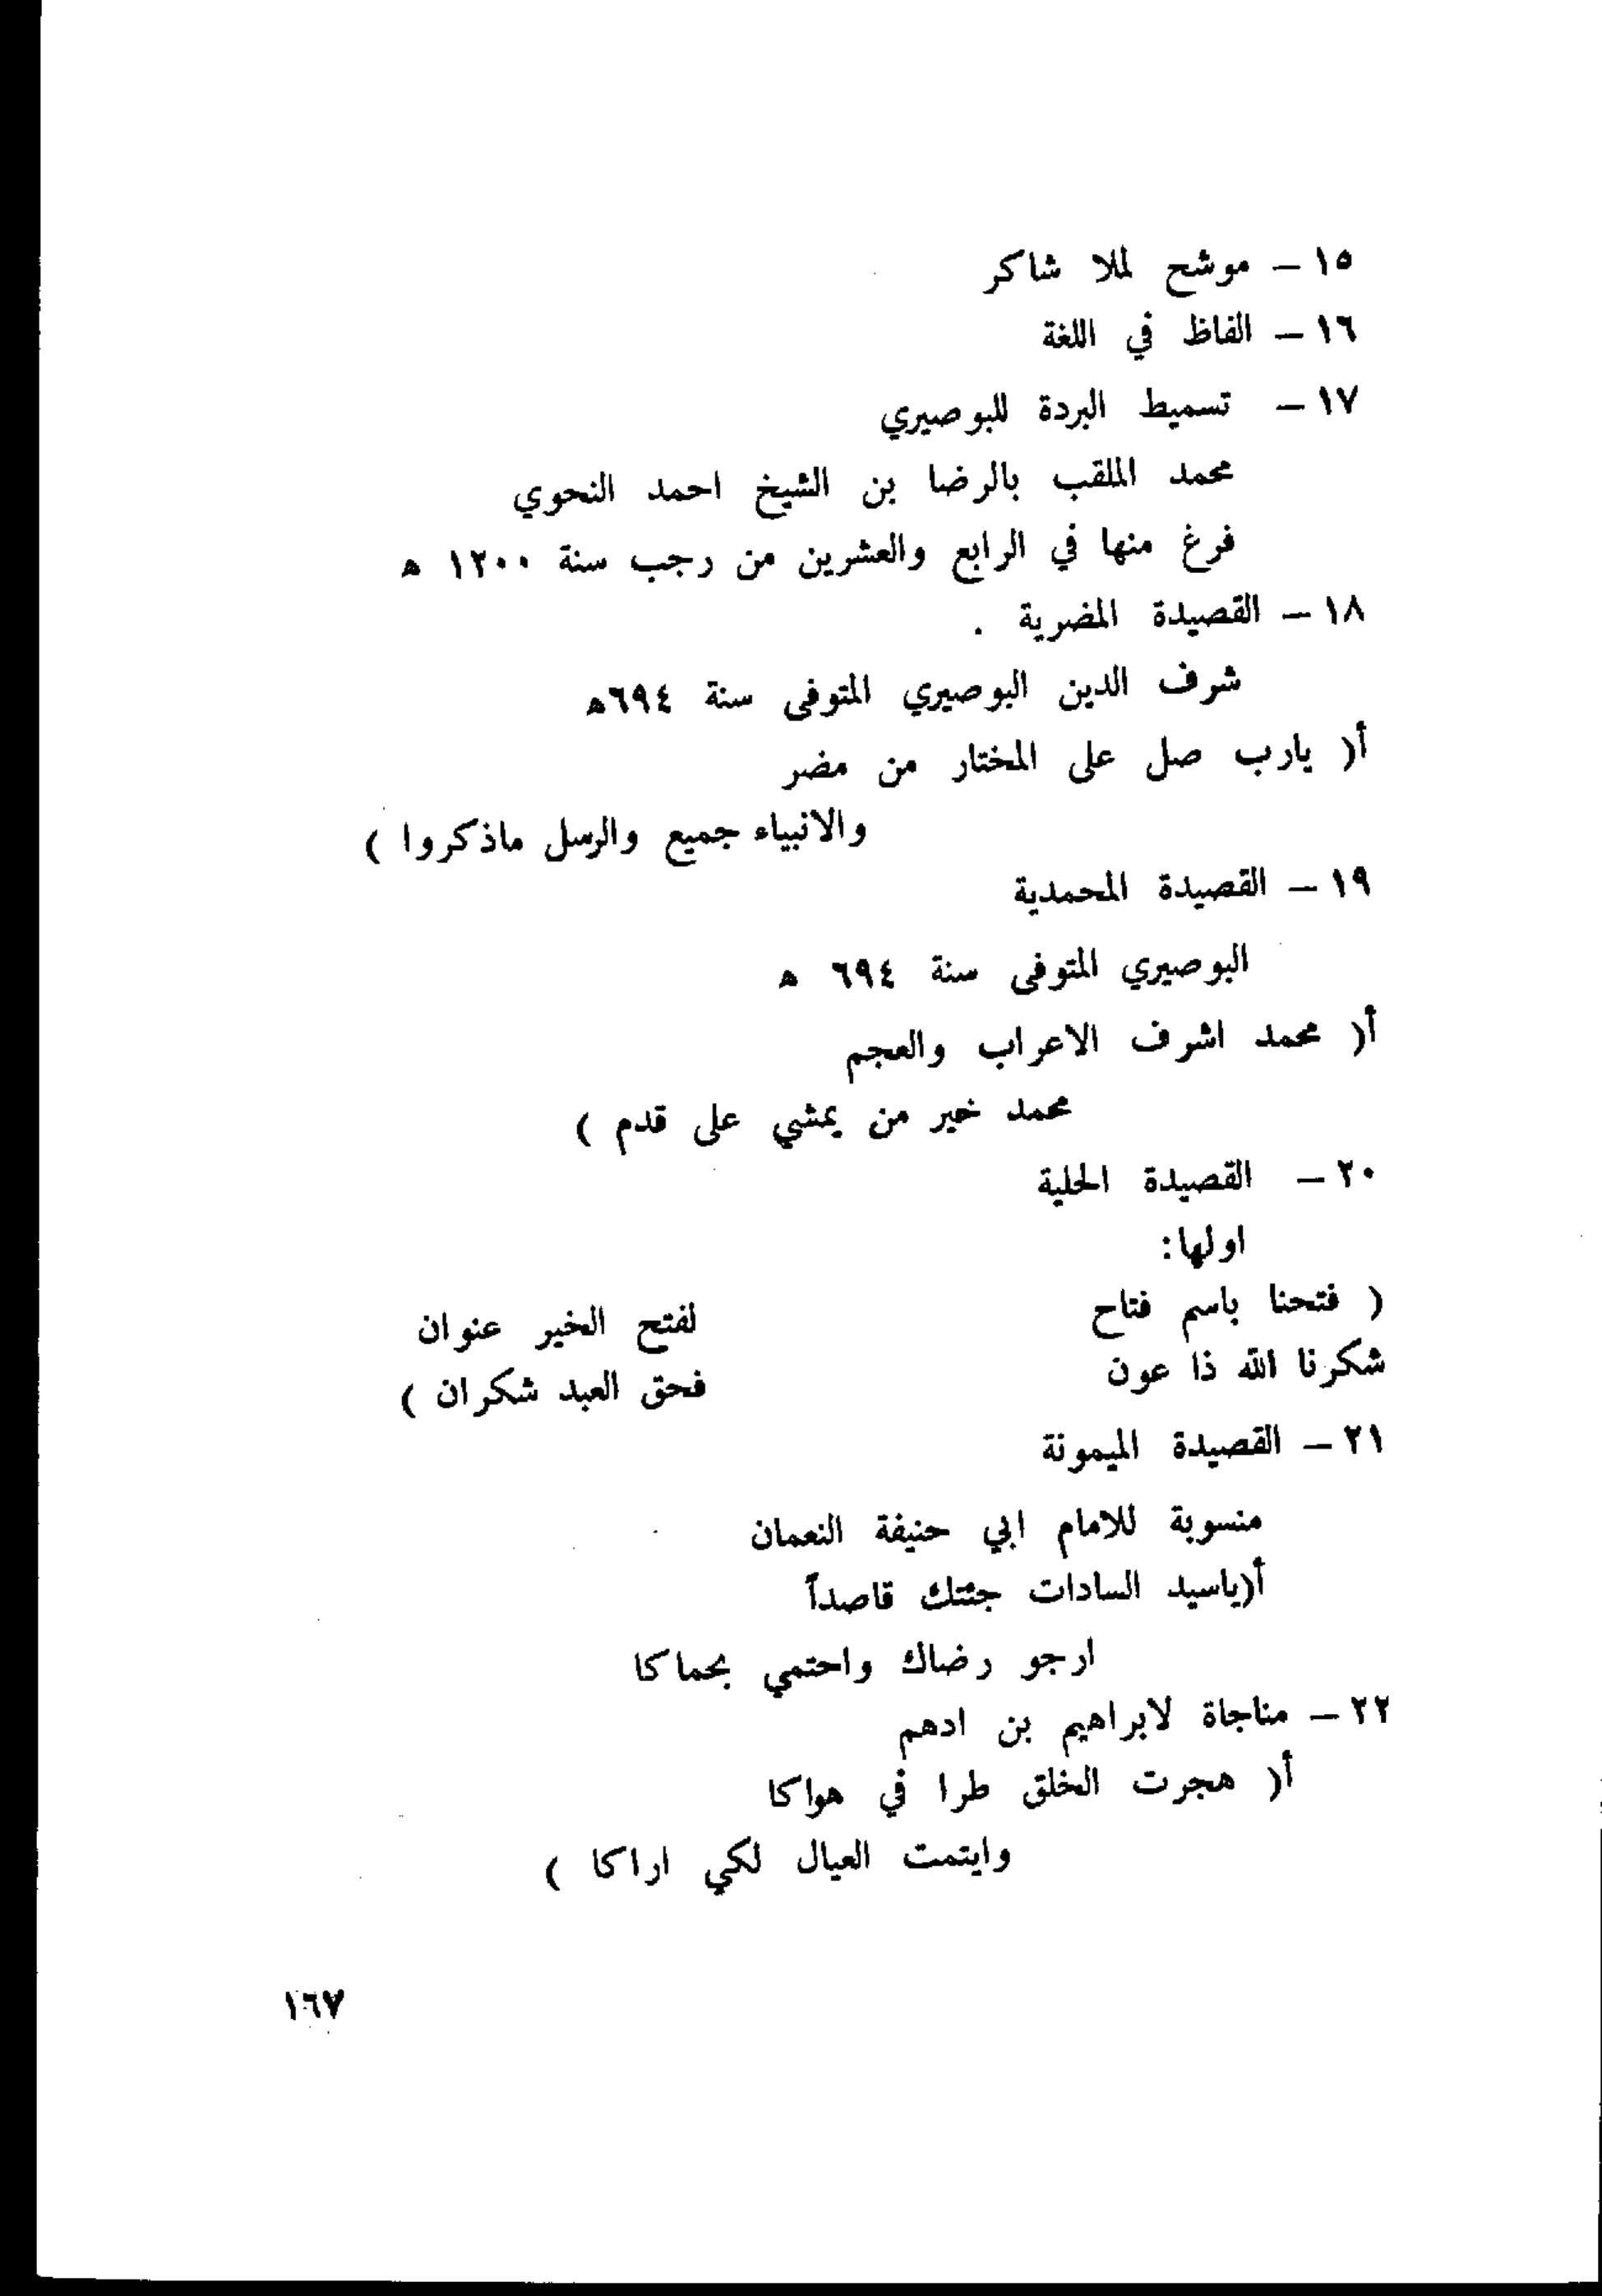 ١٥ – موشح لملا شاكر
١٦ – الفاظ في اللغة
١٧ – تسميط البردة للبوصيري
محمد الملقب بالرضا بن الشيخ احمد النحوي
فرغ منها في الرابع والعشرين من رجب سنة ١٢٠٠ ه
١٨ – القصيدة المضرية .
شرف الدين البوصيري المتوفى سنة ٦٩٤ه
أ( يارب صل على المختار من مضر
والانبياء جميع والرسل ماذكروا )
١٩ – القصيدة المحمدية
البوصيري المتوفى سنة ٦٩٤ ه
أ( محمد اشرف الاعراب والعجم
محمد خير من يمشي على قدم )
٢٠ – القصيدة الحلية
اولها:
( فتحنا باسم فتاح لفتح الخير عنوان
شكرنا الله ذا عون فحق العبد شكران )
٢١ – القصيدة الميمونة
منسوبة للامام ابي حنيفة النعمان
أ(ياسيد السادات جئتك قاصداً
ارجو رضاك واحتمي بحماكا
٢٢ – مناجاة لابراهيم بن ادهم
أ( هجرت الخلق طرا في هواكا
وايتمت العيال لكي اراكا )
١٦٧